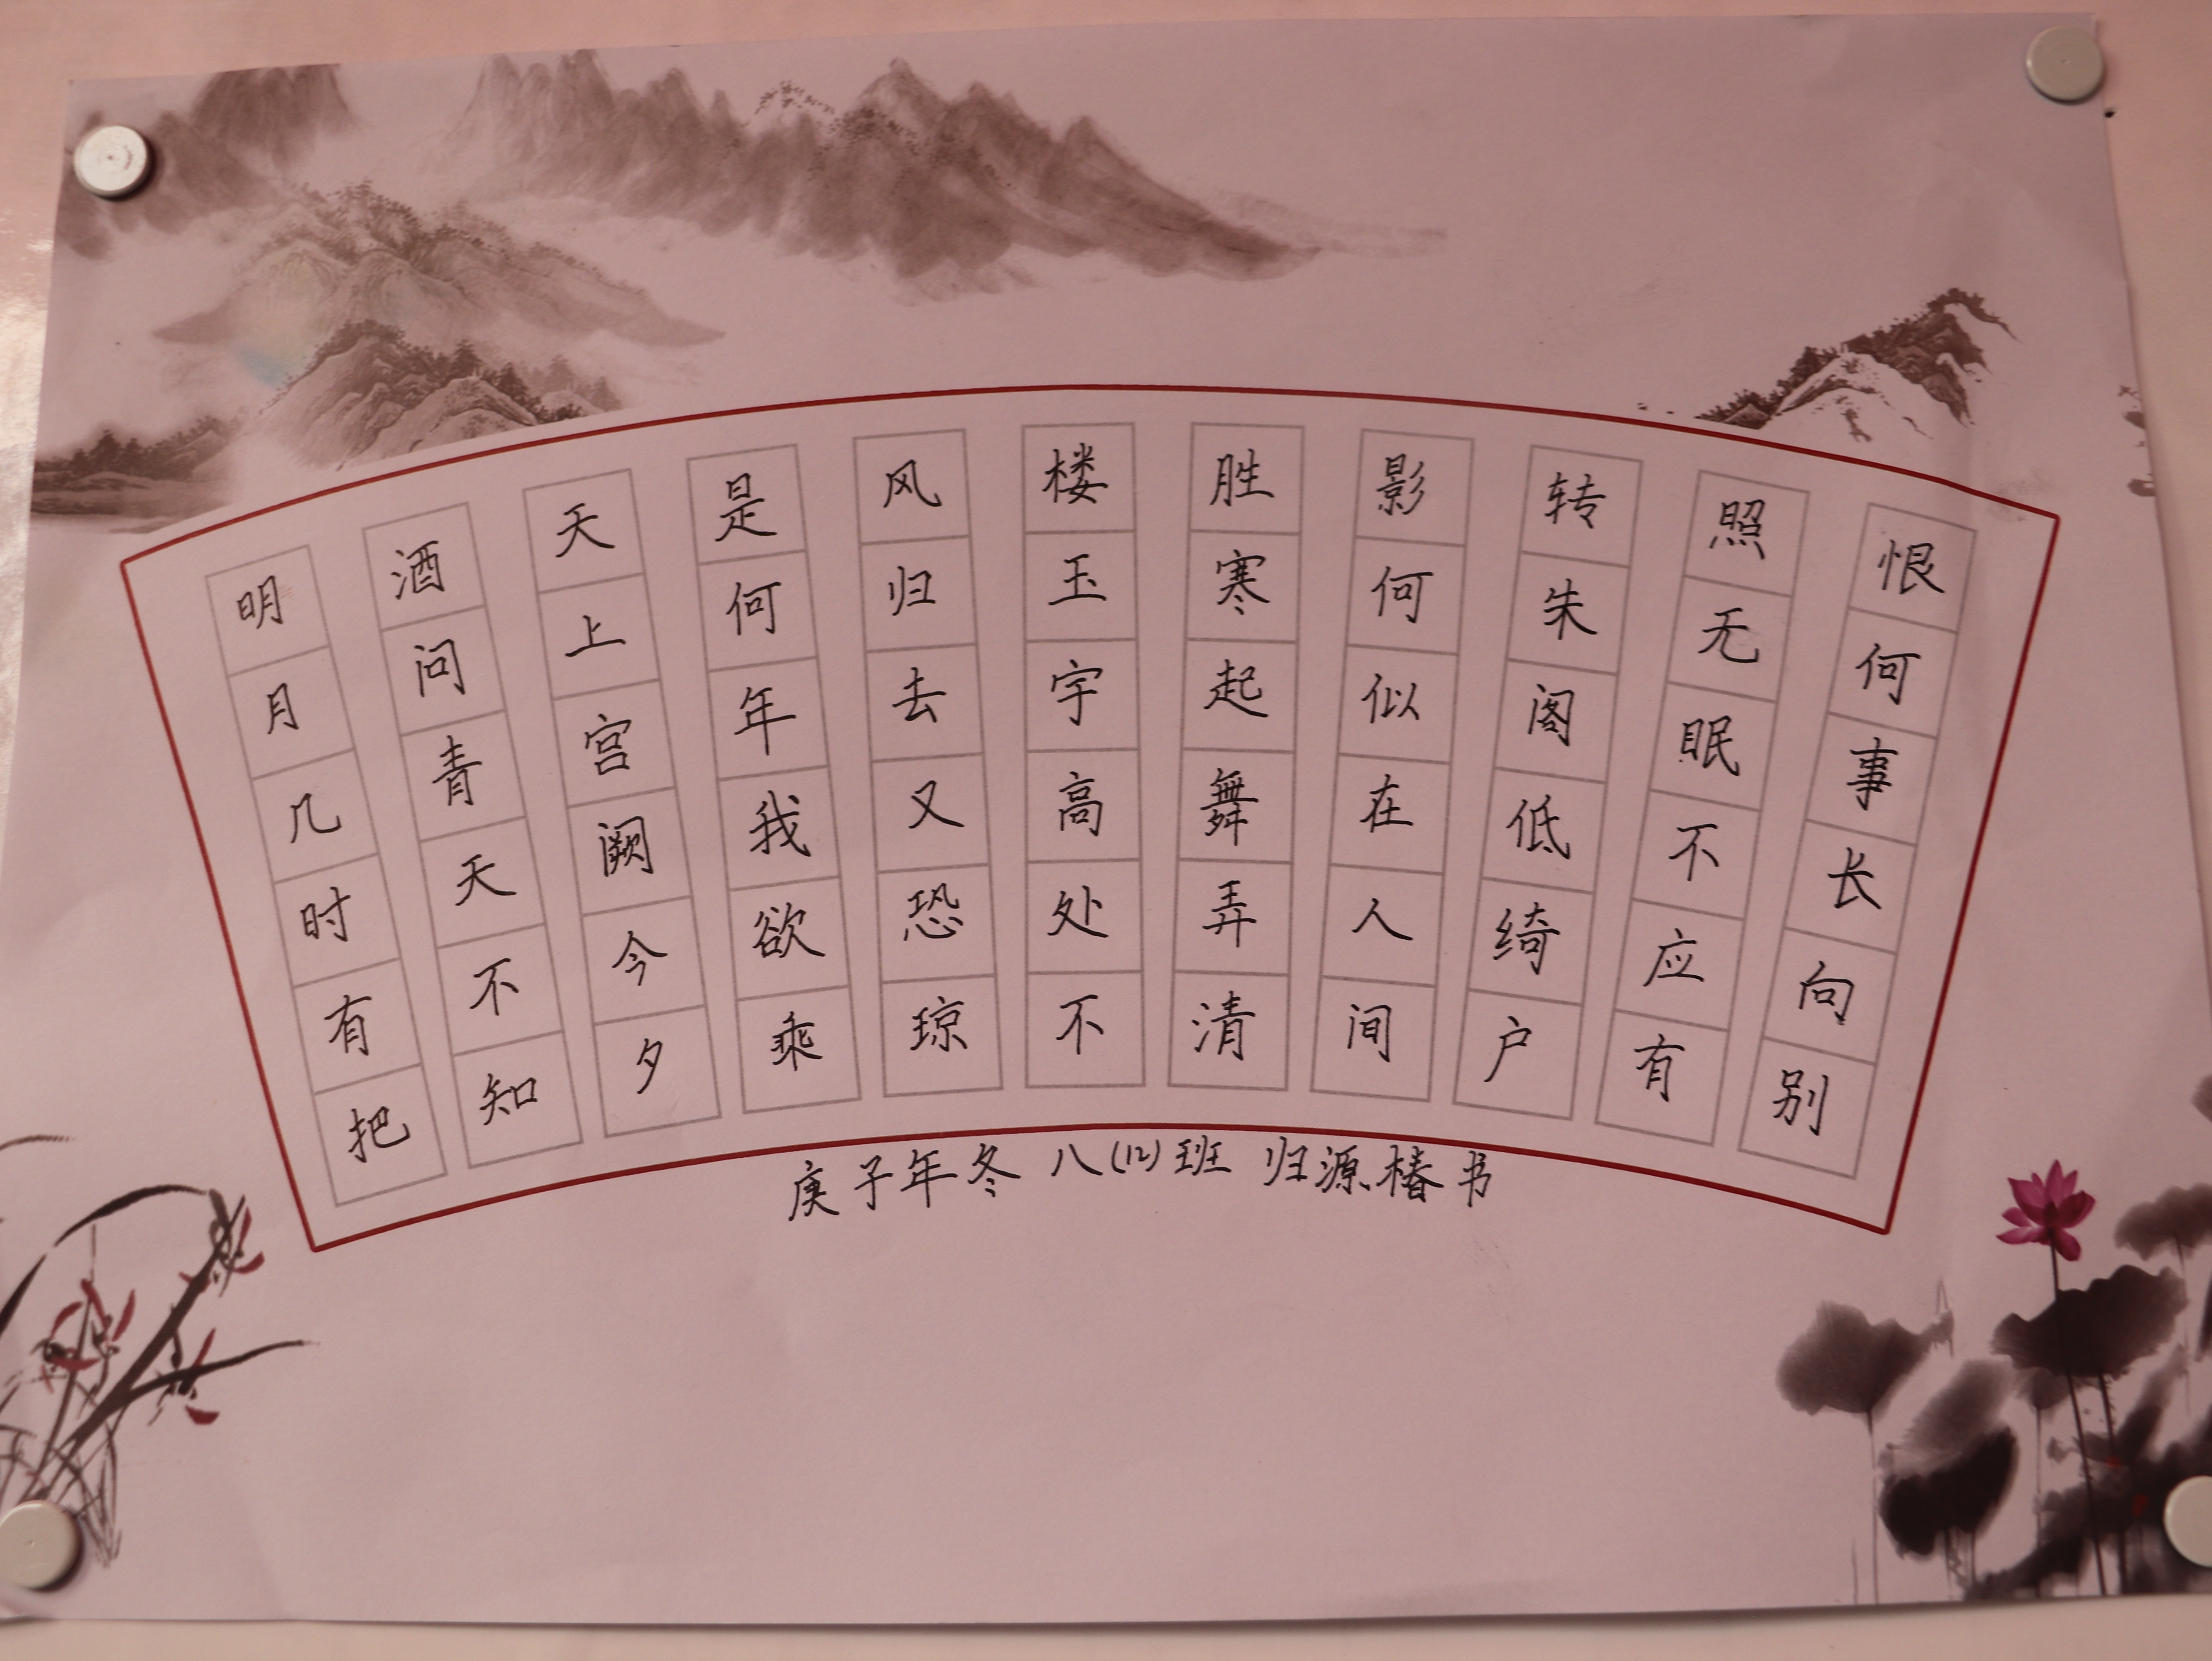 明月几时有把
酒问青天不知
天上宫阙今夕
是何年我欲乘
风归去又恐琼
楼玉宇高处不
胜寒起舞弄清
影何似在人间
转朱阁低绮户
照无眠不应有
恨何事长向别
庚子年冬 八(12)班 归源椿书